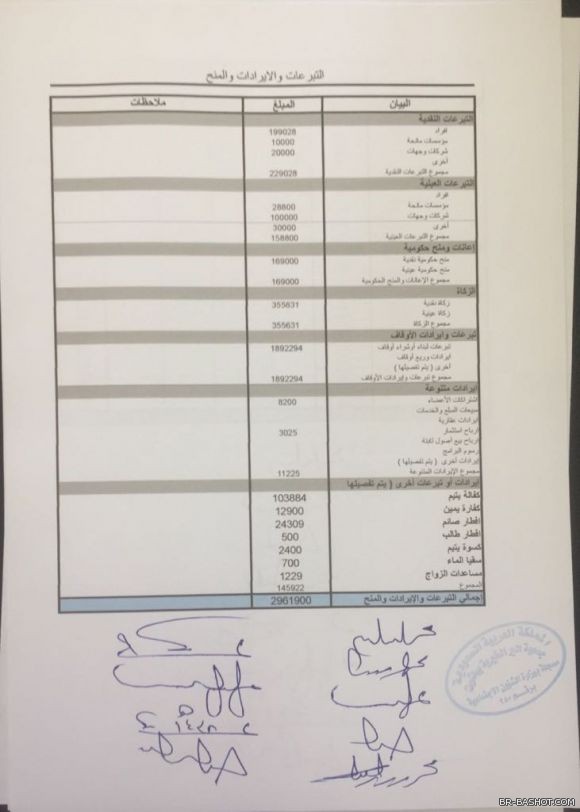 التبرعات والايرادات والمنح
البيان المبلغ ملاحظات
التبرعات النقدية
افراد 199028
مؤسسات مانحة 10000
شركات وجهات 20000
أخرى
مجموع التبرعات النقدية 229028
التبرعات العينية
افراد
مؤسسات مانحة 28800
شركات وجهات 100000
أخرى 30000
مجموع التبرعات العينية 158800
إعانات ومنح حكومية
منح حكومية نقدية 169000
منح حكومية عينية
مجموع الإعانات والمنح الحكومية 169000
الزكاة
زكاة نقدية 355631
زكاة عينية
مجموع الزكاة 355631
تبرعات وإيرادات الأوقاف
تبرعات لبناء أوشراء أوقاف 1892294
ايرادات وريع أوقاف
أخرى ( يتم تفصيلها )
مجموع تبرعات وإيرادات الأوقاف 1892294
إيرادات متنوعة
اشتراكات الأعضاء 8200
مبيعات السلع والخدمات
ايرادات عقارية
ارباح استثمار 3025
ارباح بيع أصول ثابتة
رسوم البرامج
إيرادات أخرى ( يتم تفصيلها )
مجموع الإيرادات المتنوعة 11225
إيرادات أو تبرعات أخرى ( يتم تفصيلها
كفالة يتيم 103884
كفارة يمين 12900
افطار صائم 24309
افطار طالب 500
كسوة يتيم 2400
سقيا الماء 700
مساعدات الزواج 1229
المجموع 145922
إجمالي التبرعات والإيرادات والمنح 2961900
المملكة العربية السعودية
BR-BASHOT.COM